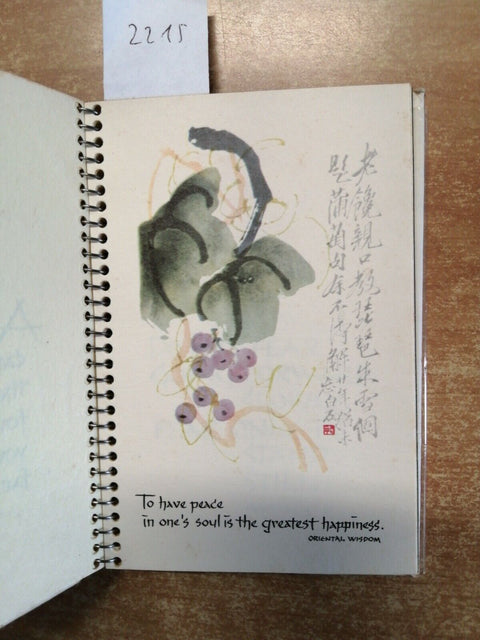 2215
老饞親口教琵琶朱雪個
題葡萄句余不得解廿年
白石
To have peace
in one's soul is the greatest happiness.
ORIENTAL WISDOM